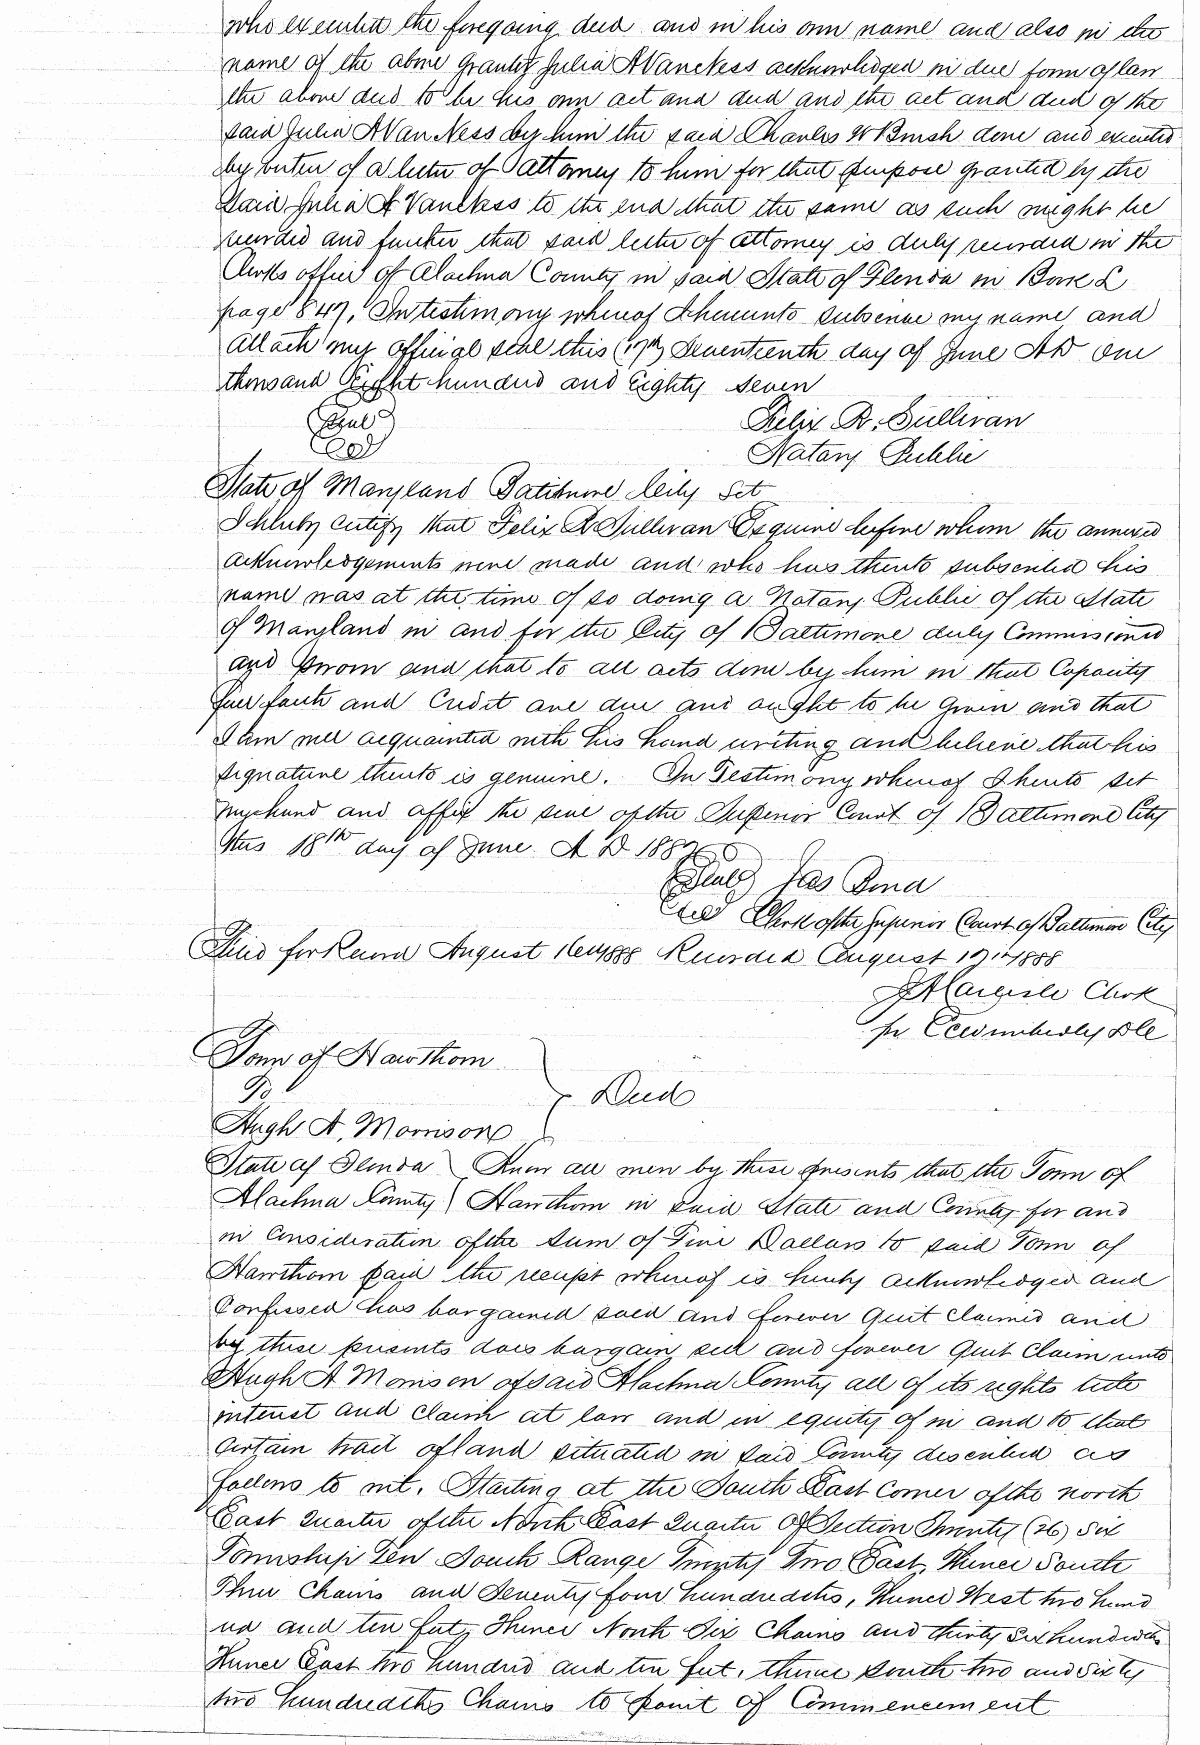 who executed the foregoing deed and in his own name and also in the
name of the above grantor Julia A Van Ness acknowledged in due form of law
the above deed to be his own act and deed and the act and deed of the
said Julia A Van Ness by him the said Charles W Brush done and executed
by virtue of a letter of attorney to him for that purpose granted by the
said Julia A Van Ness to the end that the same as such might be
recorded and further that said letter of attorney is duly recorded in the
Clerks office of Alachua County in said State of Florida in Book L
page 847. In testimony whereof I hereunto subscribe my name and
attach my official seal this (17th) Seventeenth day of June AD One
thousand Eight hundred and Eighty seven
Seal Felix R. Sullivan
Notary Public
State of Maryland Baltimore City Set
I hereby certify that Felix R Sullivan Esquire before whom the annexed
acknowledgements were made and who has thereto subscribed his
name was at the time of so doing a Notary Public of the State
of Maryland in and for the City of Baltimore duly Commissioned
and sworn and that to all acts done by him in that Capacity
full faith and Credit are due and ought to be given and that
I am well acquainted with his hand writing and believe that his
signature thereto is genuine. In Testimony whereof I hereto set
my hand and affix the seal of the Superior Court of Baltimore City
this 18th day of June A D 1887
Seal Jas Bond
Clerk of the Superior Court of Baltimore City
Filed for Record August 16th 1888 Recorded August 17th 1888
J A Carlisle Clerk
pr Wimberly DC
Town of Hawthorn
To
Deed
Hugh A, Morrison
State of Florida Know all men by these presents that the Town of
Alachua County Hawthorn in said State and County for and
in Consideration of the sum of Five Dollars to said Town of
Hawthorn paid the receipt whereof is hereby acknowledged and
Confessed has bargained sold and forever Quit Claimed and
by these presents does bargain sell and forever Quit Claim unto
Hugh A Morrison of said Alachua County all of its rights title
interest and claim at law and in equity of in and to that
certain tract of land situated in said County described as
follows to wit. Starting at the South East Corner of the north
East Quarter of the North East Quarter of Section Twenty (26) Six
Township Ten South Range Twenty Two East, Thence South
Three Chains and Seventy four hundredths, Thence West two hund
red and ten feet, Thence North Six Chains and thirty six hundredths
Thence East two hundred and ten feet, thence South two and sixty
two hundredths Chains to point of Commencement